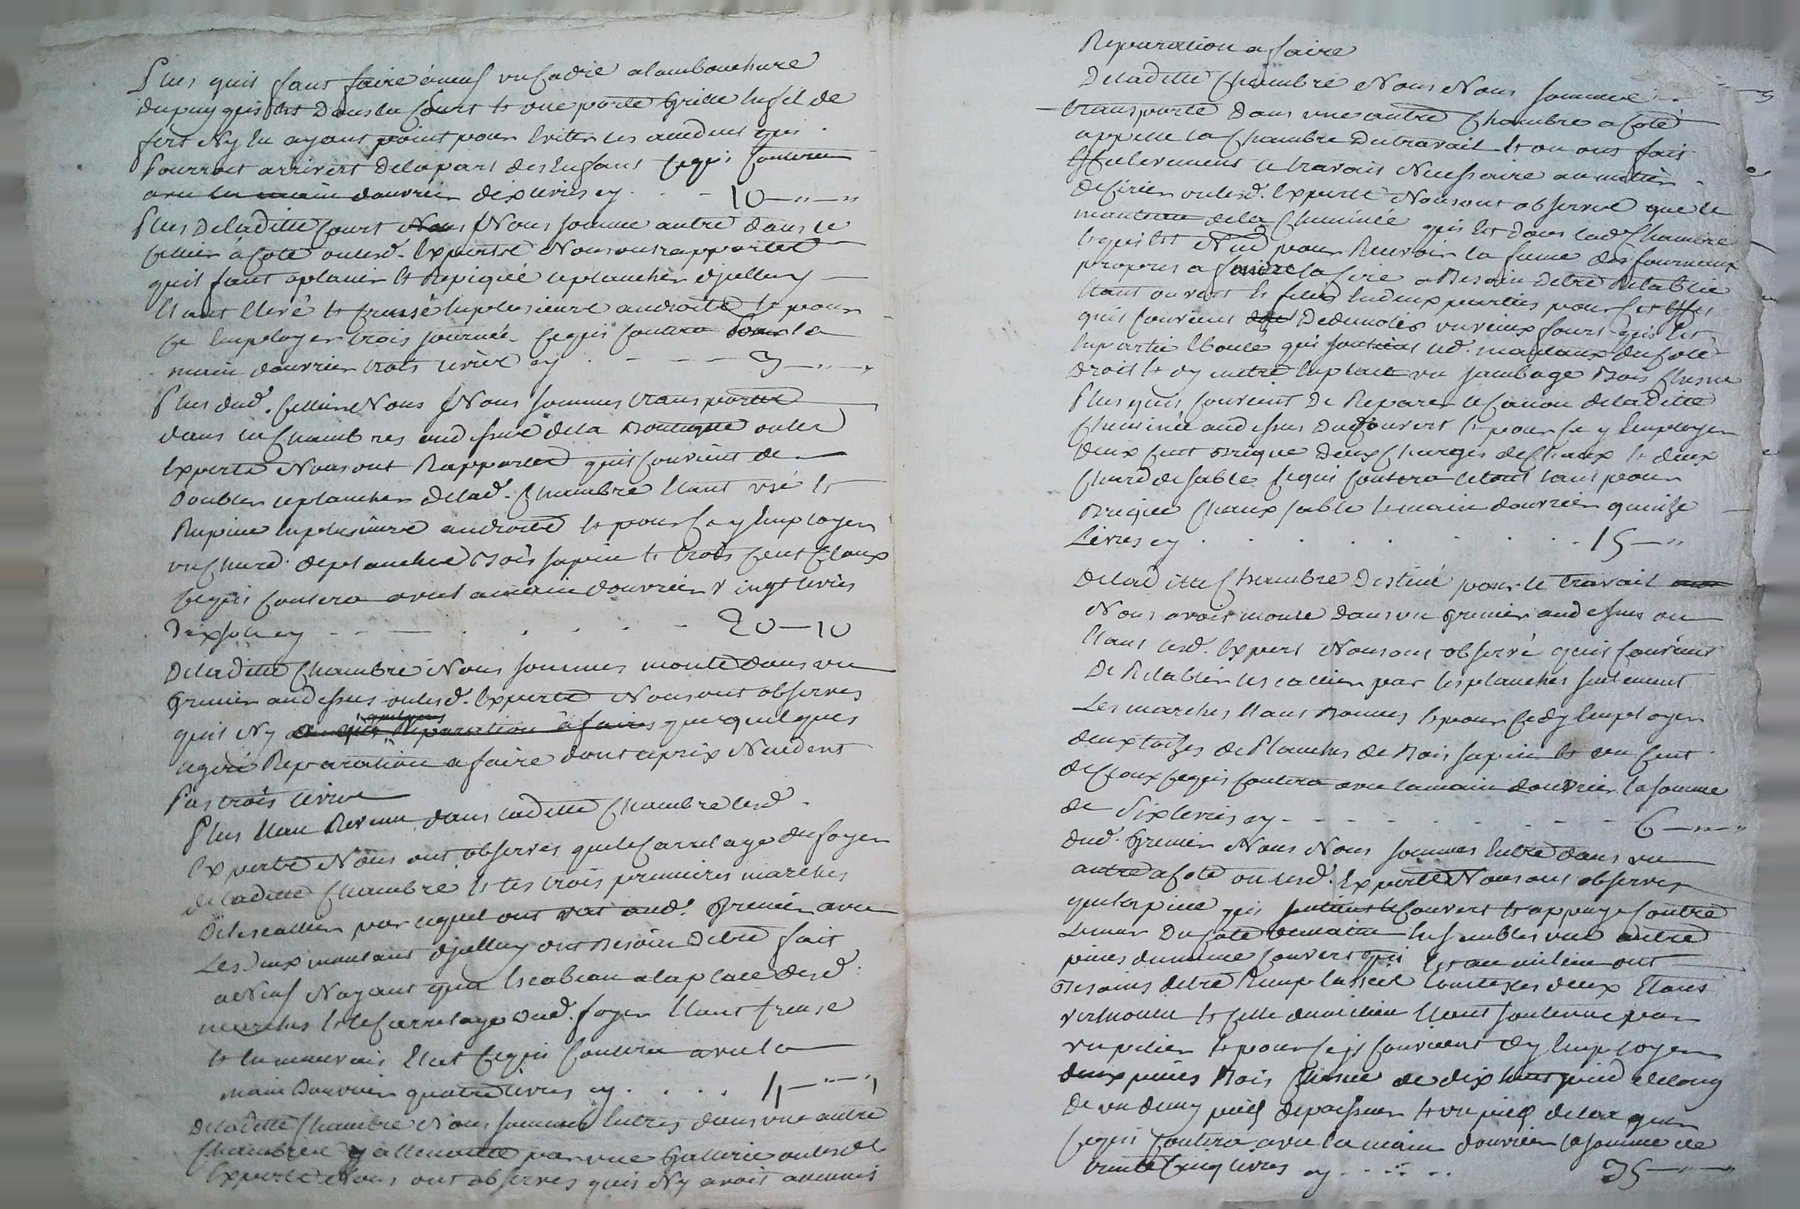 Plus quil faut faire à neuf un cadre a lambouchure
dupuy qui est Dans la Court et une porte Grille en fil de
fert Ny en ayant point pour Eviter les accidens qui
Pourroit arrivert De la part des Enfans Ce qui coutera
avec la main douvrier dix livres cy - - 10 - " - "
Plus De laditte Court Nous Nous somme entré dans le
Cellier à coté ou lesd. Expertse Nous ont rapporter
quil faut aplanir et Repiqué le plancher dycelluy
Etant Elevé et Creusé en plusieure androits et pour
ce Employer trois journée Ce qui coutera pour la
main douvrier trois livre cy - - - - 3 - " - "
Plus dud. Cellier Nous Nous sommes transporter
dans les Chambres audessus de la Boutique ou les
Experts Nous ont Rapporter quil convient de
Doubler le plancher de lad. Chambre Etant usé et
Rapiné en plusieure androits et pour ce y Employer
un Chard de planches Bois sapin et trois cent Cloux
Ce qui coutera avec la main douvrier Vingt livres
Dix sols cy - - - . . . - - 20 - 10
De laditte Chambre Nous sommes monté dans un
Grenier audessus ou lesd. Experts Nous ont observes
quil Ny a Reparation à faire que quelques
legere Reparation a faire dont le prix N'excedent
Pas trois livres
Plus Etant Revenu dans laditte Chambre lesd.
Experts Nous ont observés que le Carrelage du foyer
de laditte Chambre et les trois premieres marches
De lescallier par lequel ont vat aud. Grenier avec
Les deux montant dycelluy ont Besoin Detre fait
a Neuf N'ayant quun Escabeau a la place desd.
marches et le Carrelage dud. foyer Etant Creusé
et en mauvais Etat Ce qui coutera avec la
main Douvrier quatre livres cy . . . . 4 - " - "
De laditte Chambre Nous sommes Entres dans une autre
Chambre y attenante par une Gallerie ou lesd.
Experts Nous ont observes quil Ny avoit aucunes
Reparation a faire
De laditte Chambre Nous Nous sommes
transporté Dans une autre Chambre a Coté
appellé la Chambre Du travail Et ou ont fait
Effectivement le travail Necessaire au metier
de cirier ou lesd. Experts Nous ont observé que le
manteau de la Cheminée qui Est dans lad. Chambre
Ce qui Est Neuf pour Recevoir la fumé des fourneaux
propres a fondre la Cire a Besoin Detre Retablie
Etant ouvert et fendu En deux parties pour Cet Effet
quil convient De demolir un vieux fourt qui Est
En partie Eboulé qui soutient led. manteaux du Coté
Droit et dy mettre En place un jambage Bois Chesne
Plus quil convient De Reparer le Canon de laditte
Cheminée audessus Du Couvert et pour Ce y Employer
Deux Cent Brique Deux Charges de Chaux et deux
Chard de sable Ce qui coutera le tout tant pour
Brique Chaux sable et main douvrier quinze
Livres cy . . . . . . . . 15 - "
De laditte Chambre Destiné pour le travail
Nous avons monté Dans un Grenier audessus ou
Etant lesd. Expert Nous ont observé quil convient
De Retablir lescallier par les planches seulement
Les marches Etant Bonnes et pour ce dy Employer
deux toizes de Planches de Bois sapin et un cent
de Cloux Ce qui coutera avec la main douvrier la somme
de Six livres cy - - - - - - - 6 - " - "
Dud. Grenier Nous Nous sommes Entré dans un
autre a Coté ou lesd. Experts Nous ont observes
que la piece qui soutient le Couvert et appuye Contre
Le mur Du Coté Ensembles une autre
pieces du meme Couvert qui Est au milieu ont
Besoins detre Remplassez toutes les deux Etant
Vermoulu et Celle du milieu Etant soutenue par
un pilier et pour Ce il convient dy Employer
deux pieces Bois Chesne de dix huit pied de long
De un demy pied depaisseur et un pied de largeur
Ce qui coutera avec la main douvrier la somme de
trente cinq livres cy . . . . . . 35 - " - "